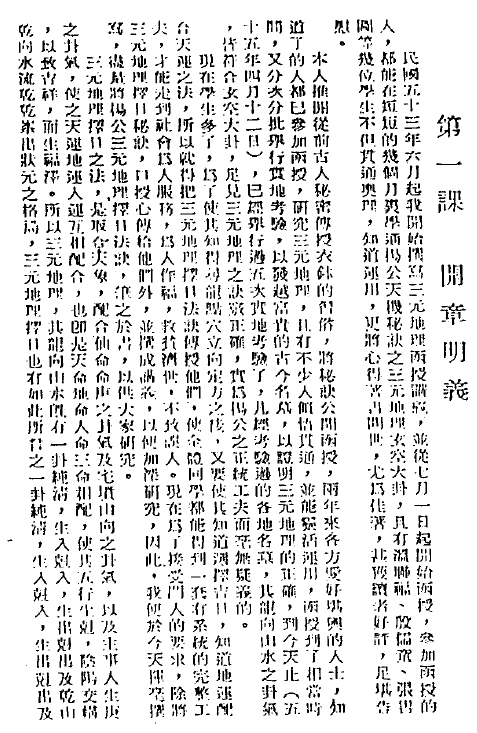 第一課　開章明義
民國五十三年六月起我開始撰寫三元地理函授講義，並從七月一日起開始函授，參加函授的
人，都能在短短的幾個月裏學通楊公天機秘訣之三元地理玄空大卦，具有溫聯福、殷儒、張得
園等幾位學生不但貫通奧理，知道運用，更將心得著書問世，尤為佳著，甚獲讀者好評，足堪告
慰。
本人推開從前古人秘密傳授衣鉢的習俗，將秘訣公開函授，兩年來各方愛好堪輿的人士，知
道了的人都已參加函授，研究三元地理，且有不少人領悟貫通，並能靈活運用，函授到了相當時
間，又分次分批舉行實地考驗，以發越富貴的古今名墓，以證明三元地理的正確，到今天止（五
十五年四月十二日），已經舉行過五次實地考驗了，凡經考驗過的各地名墓，其龍向山水之卦氣
，皆符合玄空大卦，足見三元地理之訣竅正確，實為楊公之正統工夫而毫無疑義的。
現在學生多了，為了使其知得尋龍點穴立向定方之後，又要使其知道選擇吉日，知道地運配
合天運之法，所以就得把三元地理擇日法訣傳授他們，使全體同學都能得到一套有系統的完整工
夫，才能走到社會為人服務，為人作福，救貧濟世，不致誤人。現在為了接受門人的要求，除將
三元地理擇日秘訣，口授心傳給他們外，並撰成講義，以便加深研究，因此，我便於今天揮毫撰
寫，盡量將楊公三元地理擇日法訣，筆之於書，以供大家研究。
三元地理擇日之法，是取合天象，配合仙命命庚之卦氣及宅墳山向之卦氣，以及主事人生庚
之卦氣，使之天運地運人運互相配合，也即是天命地命人命三命相配，使其五行生剋，陰陽交媾
，以致吉祥，而生福澤。所以三元地理，其龍向山水既有一卦純清，生入剋入，生出剋出及乾山
乾向水流乾乾峯出狀元之格局，三元地理擇日也有如此所得之一卦純清，生入剋入，生出剋出及